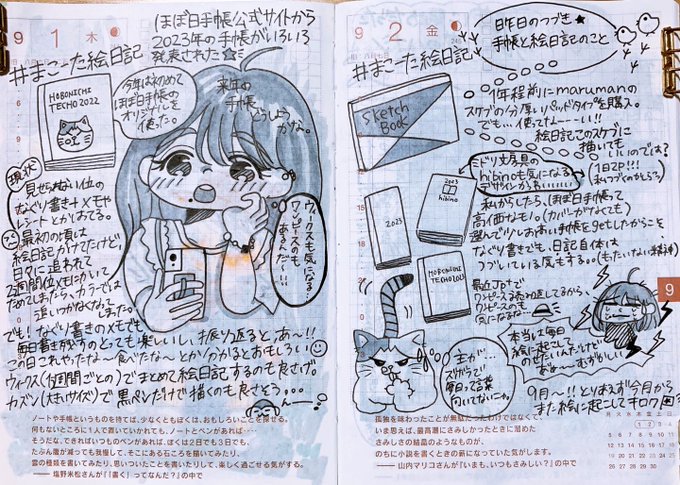 9 1 木
#まこーた絵日記
ほぼ日手帳公式サイトから
2023年の手帳がいろいろ
発表された☆
HOBONICHI
TECHO 2022
今年は初めて
ほぼ日手帳の
オリジナルを
使った。
来年の
手帳
どうしよう
かな。
現状
見せられない位の
なぐり書き+メモや
レシートとかはてる。
最初の頃は
絵日記かけてたけど、
日々に追われて
2週間位メモにかいて
ためてしまったら、カラーでは
追いつかなくなって
しまった。
ウィークスも気になる…
ワンピースのも
あるんだ〜…
でも!なぐり書きのメモでも
毎日書き残すのとっても楽しいし、振り返ると、あ〜!!
この日これやったな〜食べたな〜とかゾのかるとおもしろい
ウィークス(1週間ごとの)でまとめて絵日記するのも良さげ。
カズン(大きいサイズ)で黒ペンだけで描くのも良さそう…
ノートや手帳というものを持てば、少なくともぼくは、おもしろいことを探せる。
何もないところに1人で置いていかれても、ノートとペンがあれば……
そうだな、できればいつものペンがあれば、ぼくは2日でも3日でも、
たぶん腹が減っても我慢して、そこにある石ころを描いてみたり、
雲の種類を書いてみたり、思いついたことを書いたりして、楽しく過ごせる気がする。
——塩野米松さんが『「書く」ってなんだ?』の中で
9 2 金
#まこーた絵日記
昨日のつづき★
手帳と絵日記のこと
1年程前にmarumanの
スケブの分厚いパッドタイプを購入。
でも…使ってなーーーい!!
絵日記このスケブに
描いても
いいのでは?
Sketch
Book
(1日2P!!!
ミドリ文房具の
hibinoも気になる
2023
hibino
2023
HOBONICHI
TECHO2023
私からしたら、ほぼ日手帳って
高価なもの。(カバーがなくても)
選んで少しお高い手帳をgetしたからこそ
なぐり書きでも、日記自体は
つづいている気もする。(もったいない精神)
最近JpTVで
ワンピース
ワンピースのも
気になるな…
主が…
ズボラで
毎日って言葉
向いてないニャ。
本当は毎日
絵に起こして
のせたいんだけど
あぁ〜むずかしい
9月〜!!とりあえず今月から
また絵に起こして
9
孤独を味わったことが無駄だったわけではなくて、
いま思えば、最高潮にさみしかったときに溜めた
さみしさの結晶のようなものが、
のちに小説を書くときの薪になっていた気がします。
——山内マリコさんが『いまも、いつもさみしい?』の中で
月 火 水 木 金 土 日
1 2 3 4
5 6 7 8 9 10 11
12 13 14 15 16 17 18
19 20 21 22 23 24 25
26 27 28 29 30